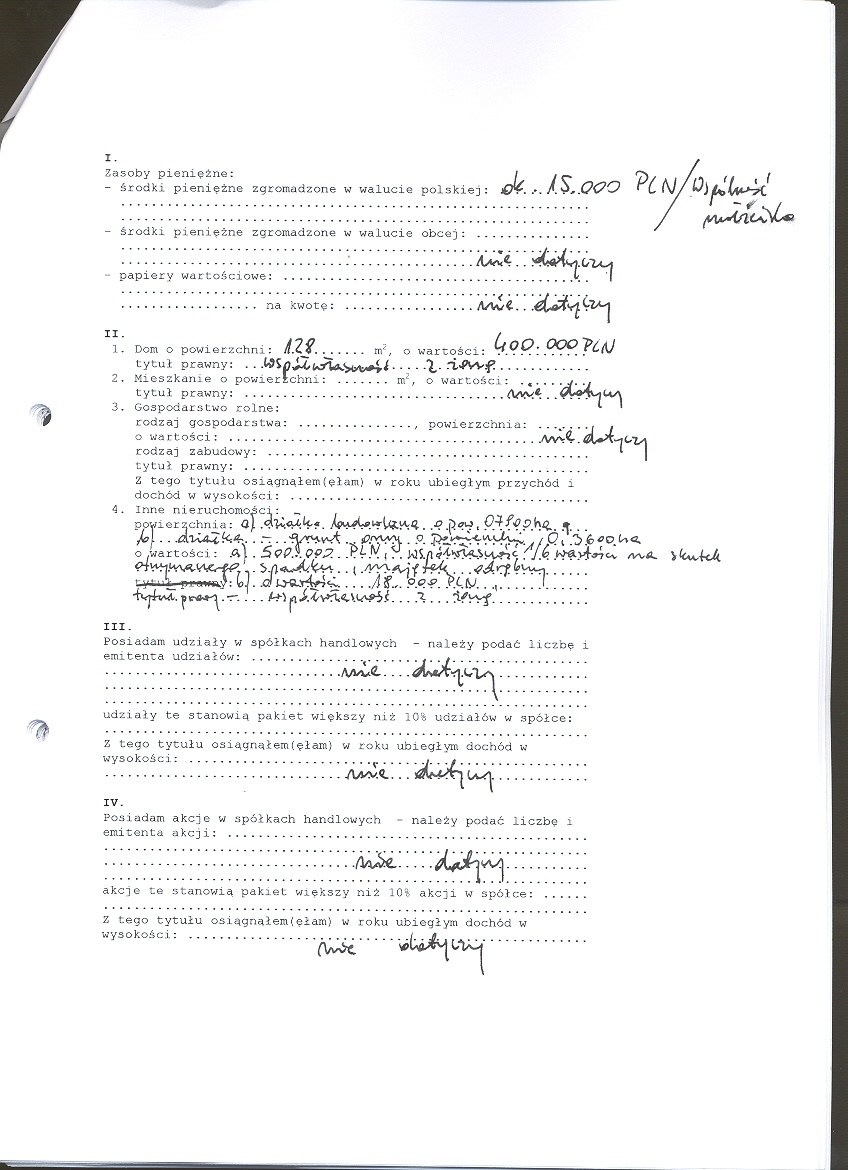 I.
Zasoby pieniężne:
- środki pieniężne zgromadzone w walucie polskiej: ok. 15.000 PLN/Wspólność
małżeńska
- środki pieniężne zgromadzone w walucie obcej: ...............
nie dotyczy
- papiery wartościowe: ........................................
................. na kwotę: ................. nie dotyczy
II.
1. Dom o powierzchni: 128....... m², o wartości: 400.000 PLN
tytuł prawny: ...współwłasność z żoną
2. Mieszkanie o powierzchni: ....... m², o wartości: ..........
tytuł prawny: .................................. nie dotyczy
3. Gospodarstwo rolne:
rodzaj gospodarstwa: ..............., powierzchnia: .......
o wartości: ....................................... nie dotyczy
rodzaj zabudowy: ...........................................
tytuł prawny: ..............................................
Z tego tytułu osiągnąłem(ęłam) w roku ubiegłym przychód i
dochód w wysokości: ........................................
4. Inne nieruchomości:
powierzchnia: a) działka budowlana o pow.
b) działka - grunt orny o powierzchni 0,3600 ha
o wartości: a) 500.000 PLN, współwłasność 1/6 wartości na skutek
otrzymanego spadku, majątek odrębny
tytuł prawny: b) o wartości 18.000 PLN
tytuł prawny - współwłasność z żoną
III.
Posiadam udziały w spółkach handlowych - należy podać liczbę i
emitenta udziałów: .............................................
nie dotyczy
udziały te stanowią pakiet większy niż 10% udziałów w spółce:
Z tego tytułu osiągnąłem(ęłam) w roku ubiegłym dochód w
wysokości: .....................................................
nie dotyczy
IV.
Posiadam akcje w spółkach handlowych - należy podać liczbę i
emitenta akcji: ................................................
nie dotyczy
akcje te stanowią pakiet większy niż 10% akcji w spółce: ......
Z tego tytułu osiągnąłem(ęłam) w roku ubiegłym dochód w
wysokości: .....................................................
nie dotyczy